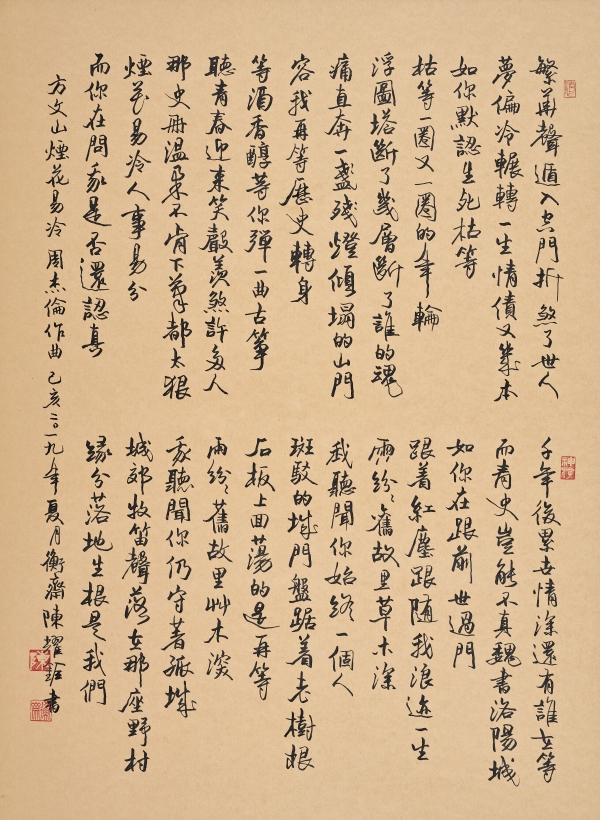 繁華聲遁入空門折煞了世人
夢偏冷輾轉一生情債又幾本
如你默認生死枯等
枯等一圈又一圈的年輪
浮圖塔斷了幾層斷了誰的魂
痛直奔一盞殘燈傾塌的山門
容我再等歷史轉身
等酒香醇等你彈一曲古箏
聽青春迎來笑聲羨煞許多人
那史册溫柔不肯下筆都太狠
煙花易冷人事易分
而你在問我是否還認真
千年後累世情深還有誰在等
而青史豈能不真魏書洛陽城
如你在跟前世過門
跟着紅塵跟随我浪迹一生
雨紛紛舊故里草木深
我聽聞你始終一個人
斑駁的城門盤踞着老樹根
石板上回蕩的是再等
雨紛紛舊故里艸木深
我聽聞你仍守著孤城
城郊牧笛聲落在那座野村
緣分落地生根是我們
方文山煙花易冷 周杰倫作曲 己亥二〇一九年夏月衡齋陳耀書